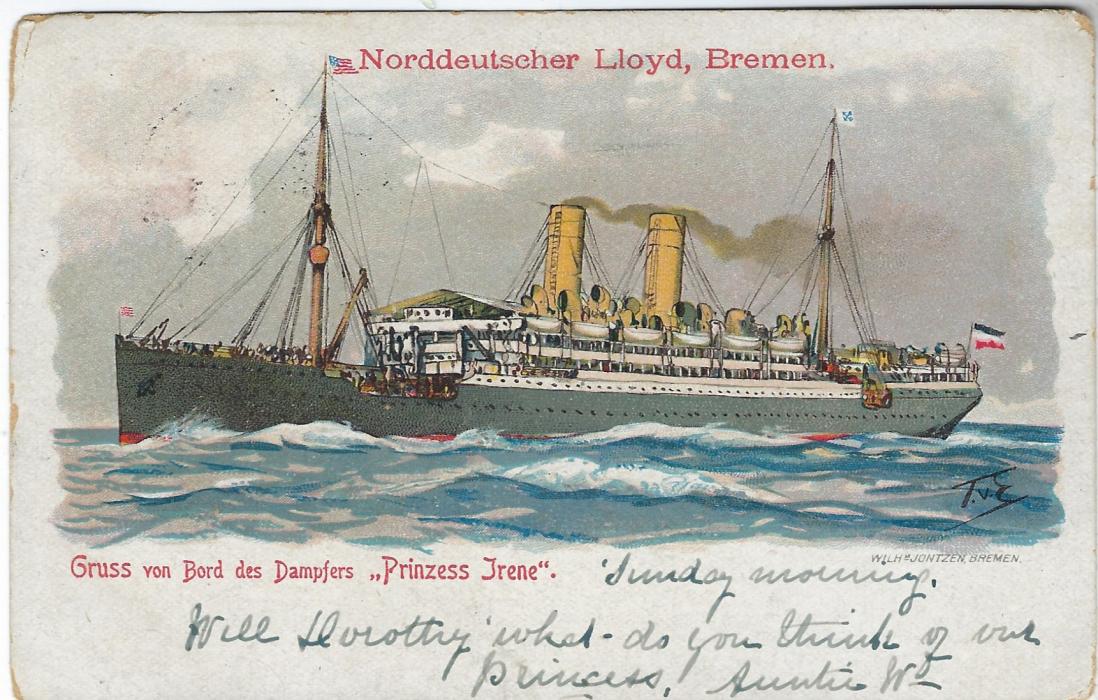 Norddeutscher Lloyd, Bremen.
T.v.E
WILHM JÖNTZEN, BREMEN.
Gruss von Bord des Dampfers „Prinzess Irene“.
Sunday morning.
Well Dorothy what do you think of our
Princess, Auntie